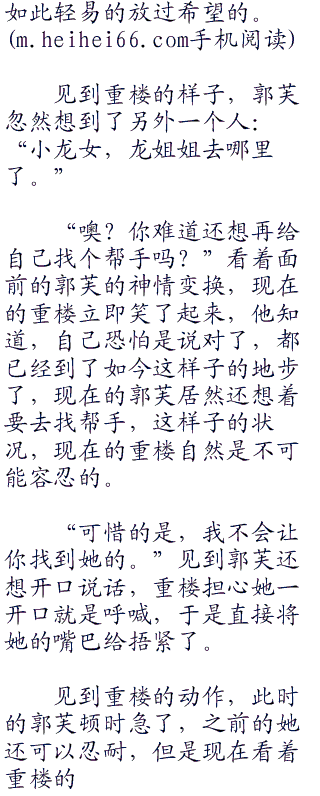 如此轻易的放过希望的。
(m.heihei66.com手机阅读)
见到重楼的样子，郭芙
忽然想到了另外一个人：
“小龙女，龙姐姐去哪里
了。”
“噢？你难道还想再给
自己找个帮手吗？”看着面
前的郭芙的神情变换，现在
的重楼立即笑了起来，他知
道，自己恐怕是说对了，都
已经到了如今这样子的地步
了，现在的郭芙居然还想着
要去找帮手，这样子的状
况，现在的重楼自然是不可
能容忍的。
“可惜的是，我不会让
你找到她的。”见到郭芙还
想开口说话，重楼担心她一
开口就是呼喊，于是直接将
她的嘴巴给捂紧了。
见到重楼的动作，此时
的郭芙顿时急了，之前的她
还可以忍耐，但是现在看着
重楼的